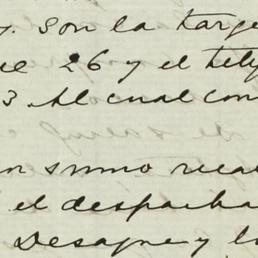 y. Son la targe
ue 26 y el tele
3 Al cual con
on sumo real
el despacha
Desague y l